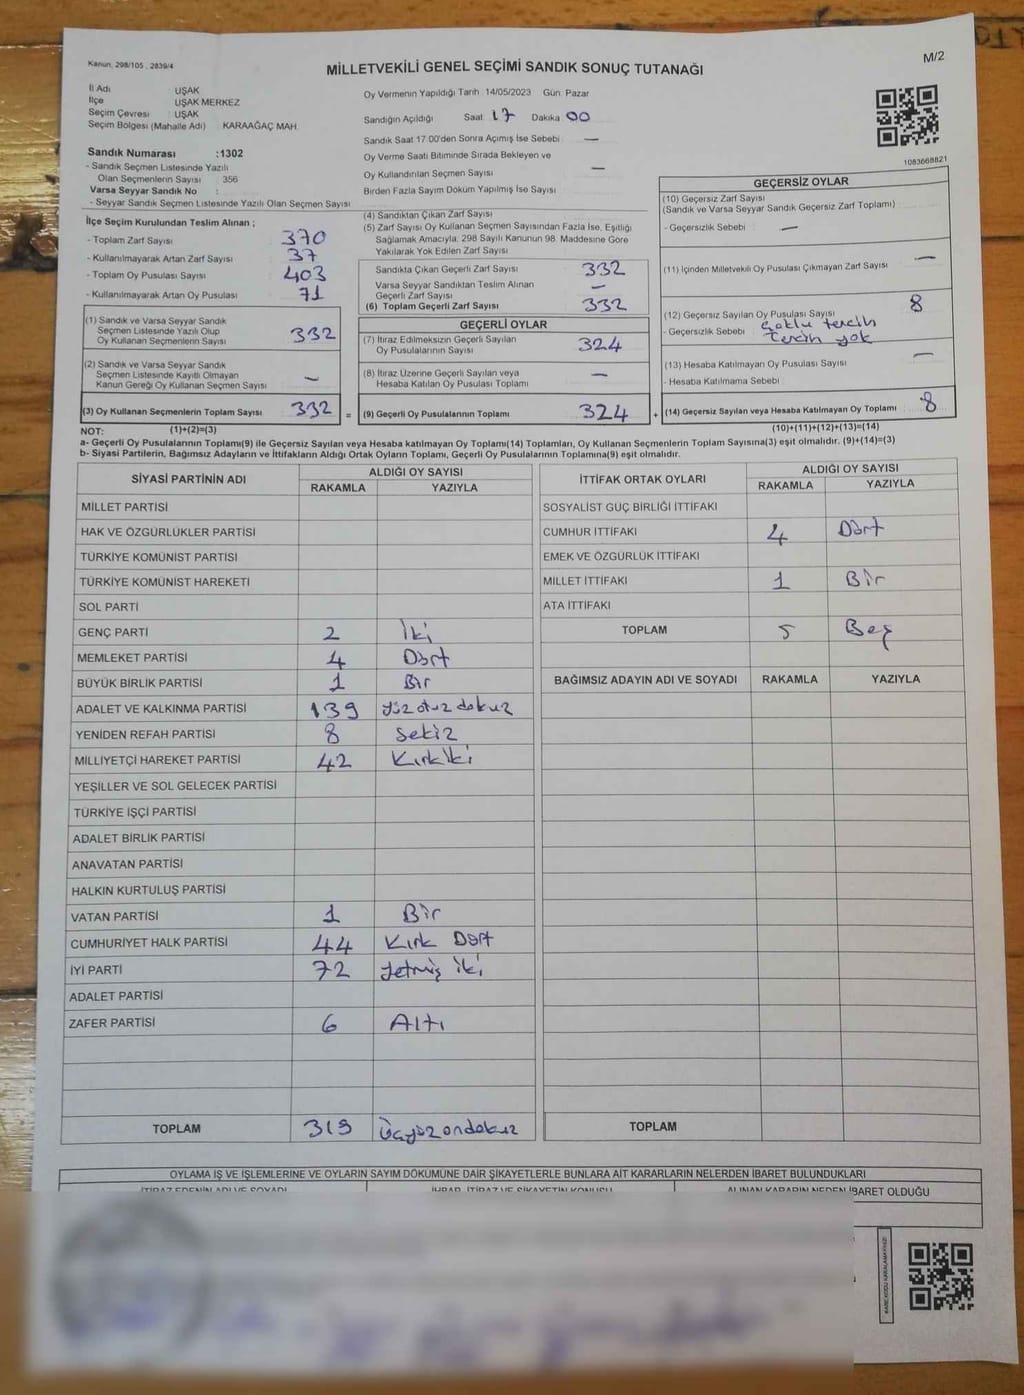 Kanun, 298/105 , 2839/4
M/2
MİLLETVEKİLİ GENEL SEÇİMİ SANDIK SONUÇ TUTANAĞI
İl Adı : UŞAK
İlçe : UŞAK MERKEZ
Seçim Çevresi : UŞAK
Seçim Bölgesi (Mahalle Adı) : KARAAĞAÇ MAH.
Sandık Numarası :1302
- Sandık Seçmen Listesinde Yazılı
Olan Seçmenlerin Sayısı : 356
Varsa Seyyar Sandık No :
- Seyyar Sandık Seçmen Listesinde Yazılı Olan Seçmen Sayısı
Oy Vermenin Yapıldığı Tarih 14/05/2023 Gün Pazar
Sandığın Açıldığı Saat 17 Dakika 00
Sandık Saat 17.00'den Sonra Açımış İse Sebebi —
Oy Verme Saati Bitiminde Sırada Bekleyen ve
Oy Kullandırılan Seçmen Sayısı —
Birden Fazla Sayım Döküm Yapılmış İse Sayısı
1083668821
İlçe Seçim Kurulundan Teslim Alınan ;
- Toplam Zarf Sayısı 370
- Kullanılmayarak Artan Zarf Sayısı 37
- Toplam Oy Pusulası Sayısı 403
- Kullanılmayarak Artan Oy Pusulası 71
(1) Sandık ve Varsa Seyyar Sandık
Seçmen Listesinde Yazılı Olup
Oy Kullanan Seçmenlerin Sayısı 332
(2) Sandık ve Varsa Seyyar Sandık
Seçmen Listesinde Kayıtlı Olmayan
Kanun Gereği Oy Kullanan Seçmen Sayısı —
(3) Oy Kullanan Seçmenlerin Toplam Sayısı 332 =
(4) Sandıktan Çıkan Zarf Sayısı
(5) Zarf Sayısı Oy Kullanan Seçmen Sayısından Fazla İse, Eşitliği
Sağlamak Amacıyla; 298 Sayılı Kanunun 98. Maddesine Göre
Yakılarak Yok Edilen Zarf Sayısı
Sandıkta Çıkan Geçerli Zarf Sayısı 332
Varsa Seyyar Sandıktan Teslim Alınan
Geçerli Zarf Sayısı —
(6) Toplam Geçerli Zarf Sayısı 332
GEÇERLİ OYLAR
(7) İtiraz Edilmeksizin Geçerli Sayılan
Oy Pusulalarının Sayısı 324
(8) İtiraz Üzerine Geçerli Sayılan veya
Hesaba Katılan Oy Pusulası Toplamı —
(9) Geçerli Oy Pusulalarının Toplamı 324 +
GEÇERSİZ OYLAR
(10) Geçersiz Zarf Sayısı
(Sandık ve Varsa Seyyar Sandık Geçersiz Zarf Toplamı)
- Geçersizlik Sebebi : —
(11) İçinden Milletvekili Oy Pusulası Çıkmayan Zarf Sayısı —
(12) Geçersiz Sayılan Oy Pusulası Sayısı 8
- Geçersizlik Sebebi : Çoklu tercih
Tercih yok
(13) Hesaba Katılmayan Oy Pusulası Sayısı —
- Hesaba Katılmama Sebebi :
(14) Geçersiz Sayılan veya Hesaba Katılmayan Oy Toplamı 8
NOT: (1)+(2)=(3) (10)+(11)+(12)+(13)=(14)
a- Geçerli Oy Pusulalarının Toplamı(9) ile Geçersiz Sayılan veya Hesaba katılmayan Oy Toplamı(14) Toplamları, Oy Kullanan Seçmenlerin Toplam Sayısına(3) eşit olmalıdır. (9)+(14)=(3)
b- Siyasi Partilerin, Bağımsız Adayların ve İttifakların Aldığı Ortak Oyların Toplamı, Geçerli Oy Pusulalarının Toplamına(9) eşit olmalıdır.
SİYASİ PARTİNİN ADI ALDIĞI OY SAYISI
RAKAMLA YAZIYLA
MİLLET PARTİSİ
HAK VE ÖZGÜRLÜKLER PARTİSİ
TÜRKİYE KOMÜNİST PARTİSİ
TÜRKİYE KOMÜNİST HAREKETİ
SOL PARTİ
GENÇ PARTİ 2 İki
MEMLEKET PARTİSİ 4 Dört
BÜYÜK BİRLİK PARTİSİ 1 Bir
ADALET VE KALKINMA PARTİSİ 139 yüz otuz dokuz
YENİDEN REFAH PARTİSİ 8 Sekiz
MİLLİYETÇİ HAREKET PARTİSİ 42 Kırk iki
YEŞİLLER VE SOL GELECEK PARTİSİ
TÜRKİYE İŞÇİ PARTİSİ
ADALET BİRLİK PARTİSİ
ANAVATAN PARTİSİ
HALKIN KURTULUŞ PARTİSİ
VATAN PARTİSİ 1 Bir
CUMHURİYET HALK PARTİSİ 44 Kırk Dört
İYİ PARTİ 72 yetmiş iki
ADALET PARTİSİ
ZAFER PARTİSİ 6 Altı
TOPLAM 319 Üçyüz ondokuz
İTTİFAK ORTAK OYLARI ALDIĞI OY SAYISI
RAKAMLA YAZIYLA
SOSYALİST GÜÇ BİRLİĞİ İTTİFAKI
CUMHUR İTTİFAKI 4 Dört
EMEK VE ÖZGÜRLÜK İTTİFAKI
MİLLET İTTİFAKI 1 Bir
ATA İTTİFAKI
TOPLAM 5 Beş
BAĞIMSIZ ADAYIN ADI VE SOYADI RAKAMLA YAZIYLA
TOPLAM
OYLAMA İŞ VE İŞLEMLERİNE VE OYLARIN SAYIM DÖKÜMÜNE DAİR ŞİKAYETLERLE BUNLARA AİT KARARLARIN NELERDEN İBARET BULUNDUKLARI
İTİRAZ EDENİN ADI VE SOYADI İHBAR, İTİRAZ VE ŞİKAYETİN KONUSU ALINAN KARARIN NEDEN İBARET OLDUĞU